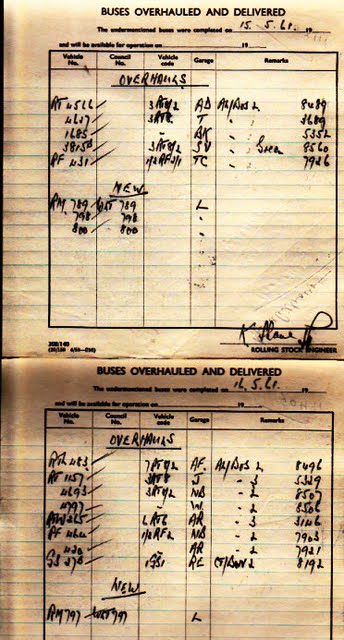 BUSES OVERHAULED AND DELIVERED
The undermentioned buses were completed on 15.5.61. 19
and will be available for operation on 19
Vehicle No. Council No. Vehicle code Garage Remarks
OVERHAULS
RT 4566 3RT8/2 AD 8489
4627 3RT8 T 3689
1685 AK 5352
3815 3RT8/2 SV Green 8560
RF 431 1/2RF2/1 TC 7926
NEW
RM 789 WLT 789 L
798 798
800 800
ROLLING STOCK ENGINEER
BUSES OVERHAULED AND DELIVERED
The undermentioned buses were completed on 16.5.61. 19
and will be available for operation on 19
Vehicle No. Council No. Vehicle code Garage Remarks
OVERHAULS
RTL 483 7RT8/2 AF 2 8496
RT 1157 3RT8 J 3 5329
4693 3RT8/2 NB 2 8507
4797 W 2 8506
RTW 265 6RT6 AR 3 3146
RF 464 1/2RF2 NB 2 7903
420 AR 2 7921
GS 27 1GS1 RE 2 8192
NEW
RM 797 WLT 797 L